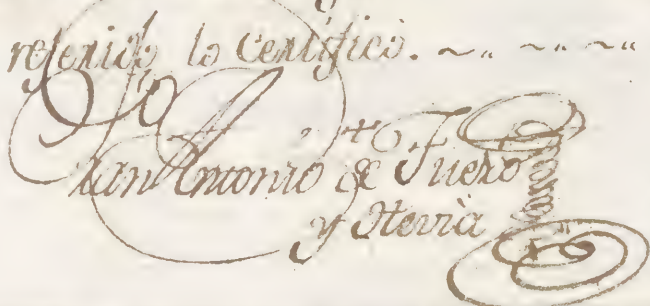 referido lo certifico.
Juan Antonio de Fuero
y Hevia